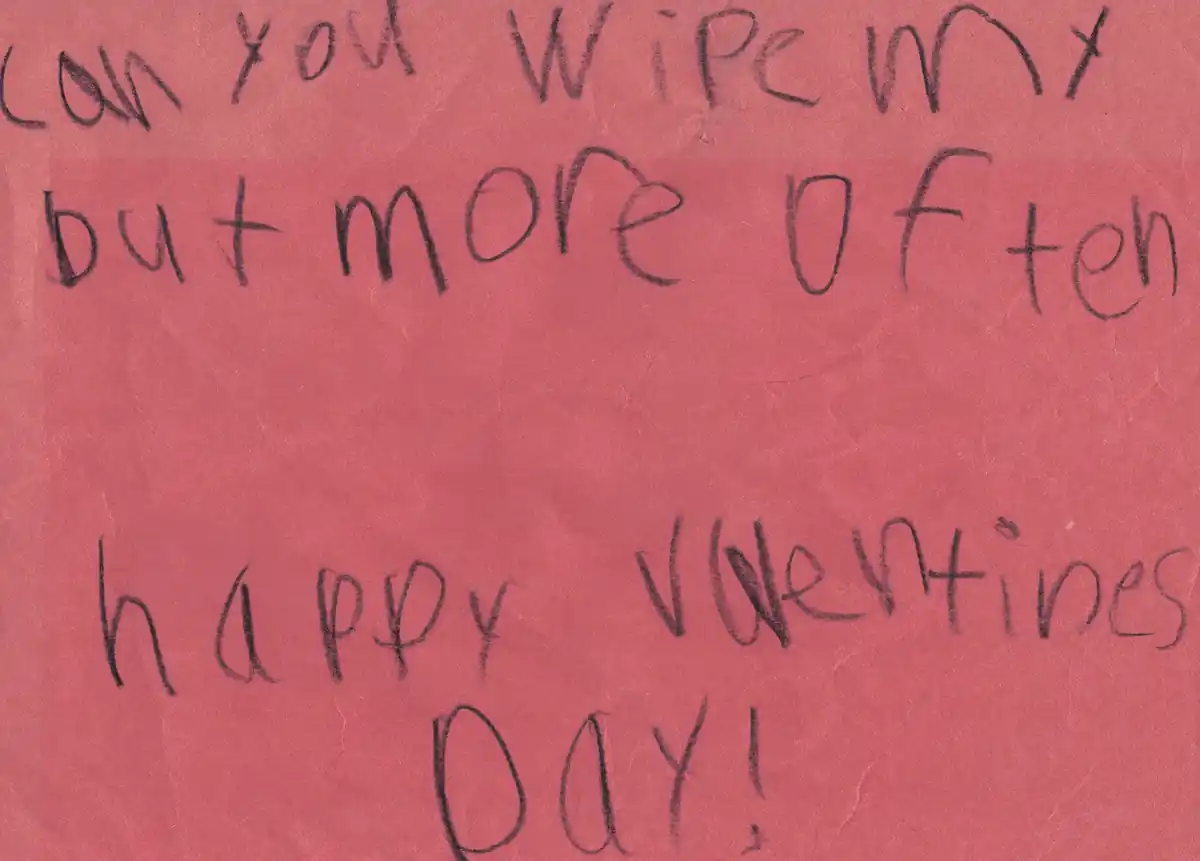 can you wipe my
but more often
happy valentines
DAY!